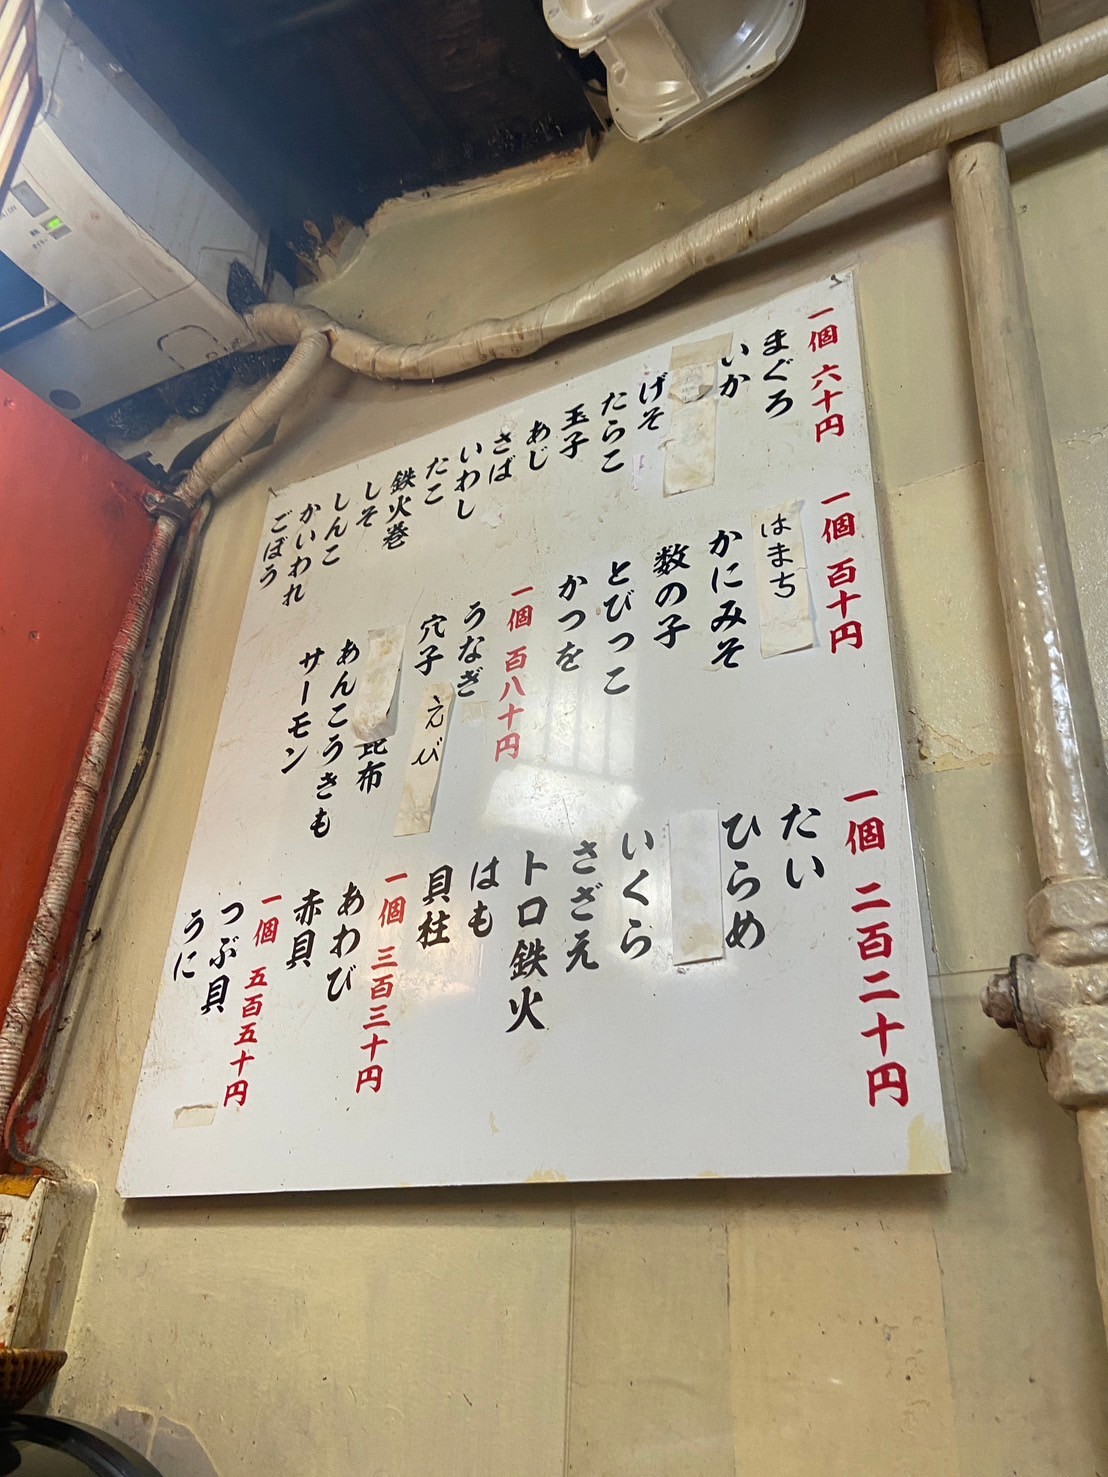 一個 六十円
まぐろ
いか
げそ
たらこ
玉子
あじ
さば
いわし
たこ
鉄火巻
しそ
しんこ
かいわれ
ごぼう
一個 百十円
はまち
かにみそ
数の子
とびっこ
かつを
一個 百八十円
うなぎ
穴子
えび
昆布
あんこうきも
サーモン
一個 二百二十円
たい
ひらめ
いくら
さざえ
トロ鉄火
はも
貝柱
一個 三百三十円
あわび
赤貝
一個 五百五十円
つぶ貝
うに